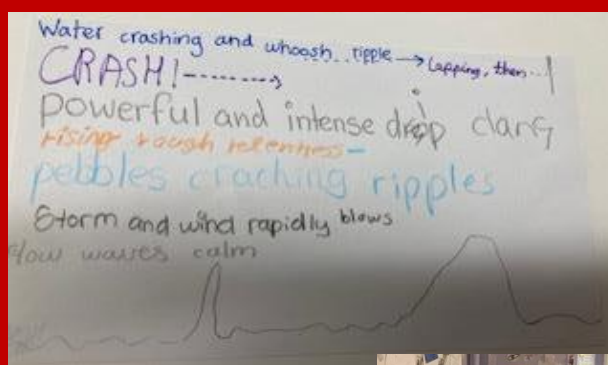 Water crashing and whoosh.. ripple → Lapping, then...
CRASH!--------→
powerful and intense drop clang
rising rough relentless-
pebbles craching ripples
Storm and wind rapidly blows
slow waves calm